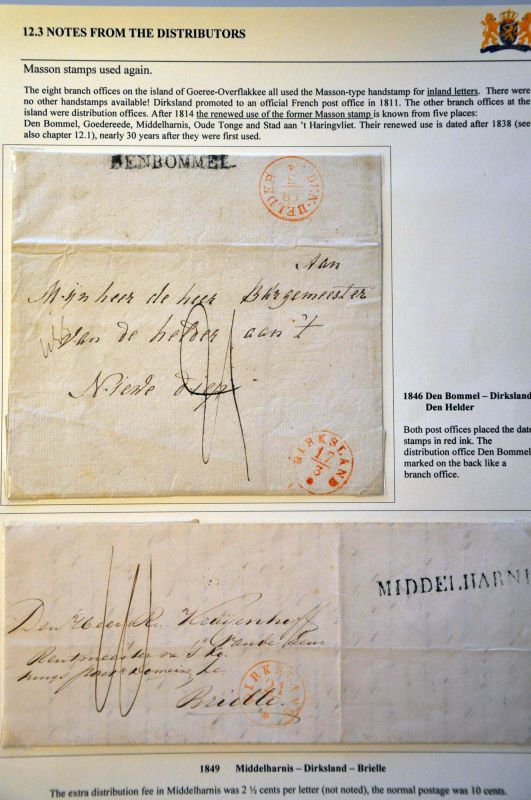 12.3 NOTES FROM THE DISTRIBUTORS
Masson stamps used again.
The eight branch offices on the island of Goeree-Overflakkee all used the Masson-type handstamp for inland letters. There were
no other handstamps available! Dirksland promoted to an official French post office in 1811. The other branch offices at the
island were distribution offices. After 1814 the renewed use of the former Masson stamp is known from five places:
Den Bommel, Goedereede, Middelharnis, Oude Tonge and Stad aan 't Haringvliet. Their renewed use is dated after 1838 (see
also chapter 12.1), nearly 30 years after they were first used.
DENBOMMEL
DEN-HELDER
Aan
Mijn heer de heer Burgemeester
van de helder aan 't
Niewe diep
DIRKSLAND
17
3
1846 Den Bommel – Dirksland
Den Helder
Both post offices placed the date
stamps in red ink. The
distribution office Den Bommel
marked on the back like a
branch office.
MIDDELHARNI
Den Heer R. Kraijenhoff
Rentmeester
Domeinen te
Brielle.
DIRKSLAND
21
1849 Middelharnis – Dirksland – Brielle
The extra distribution fee in Middelharnis was 2 ½ cents per letter (not noted), the normal postage was 10 cents.